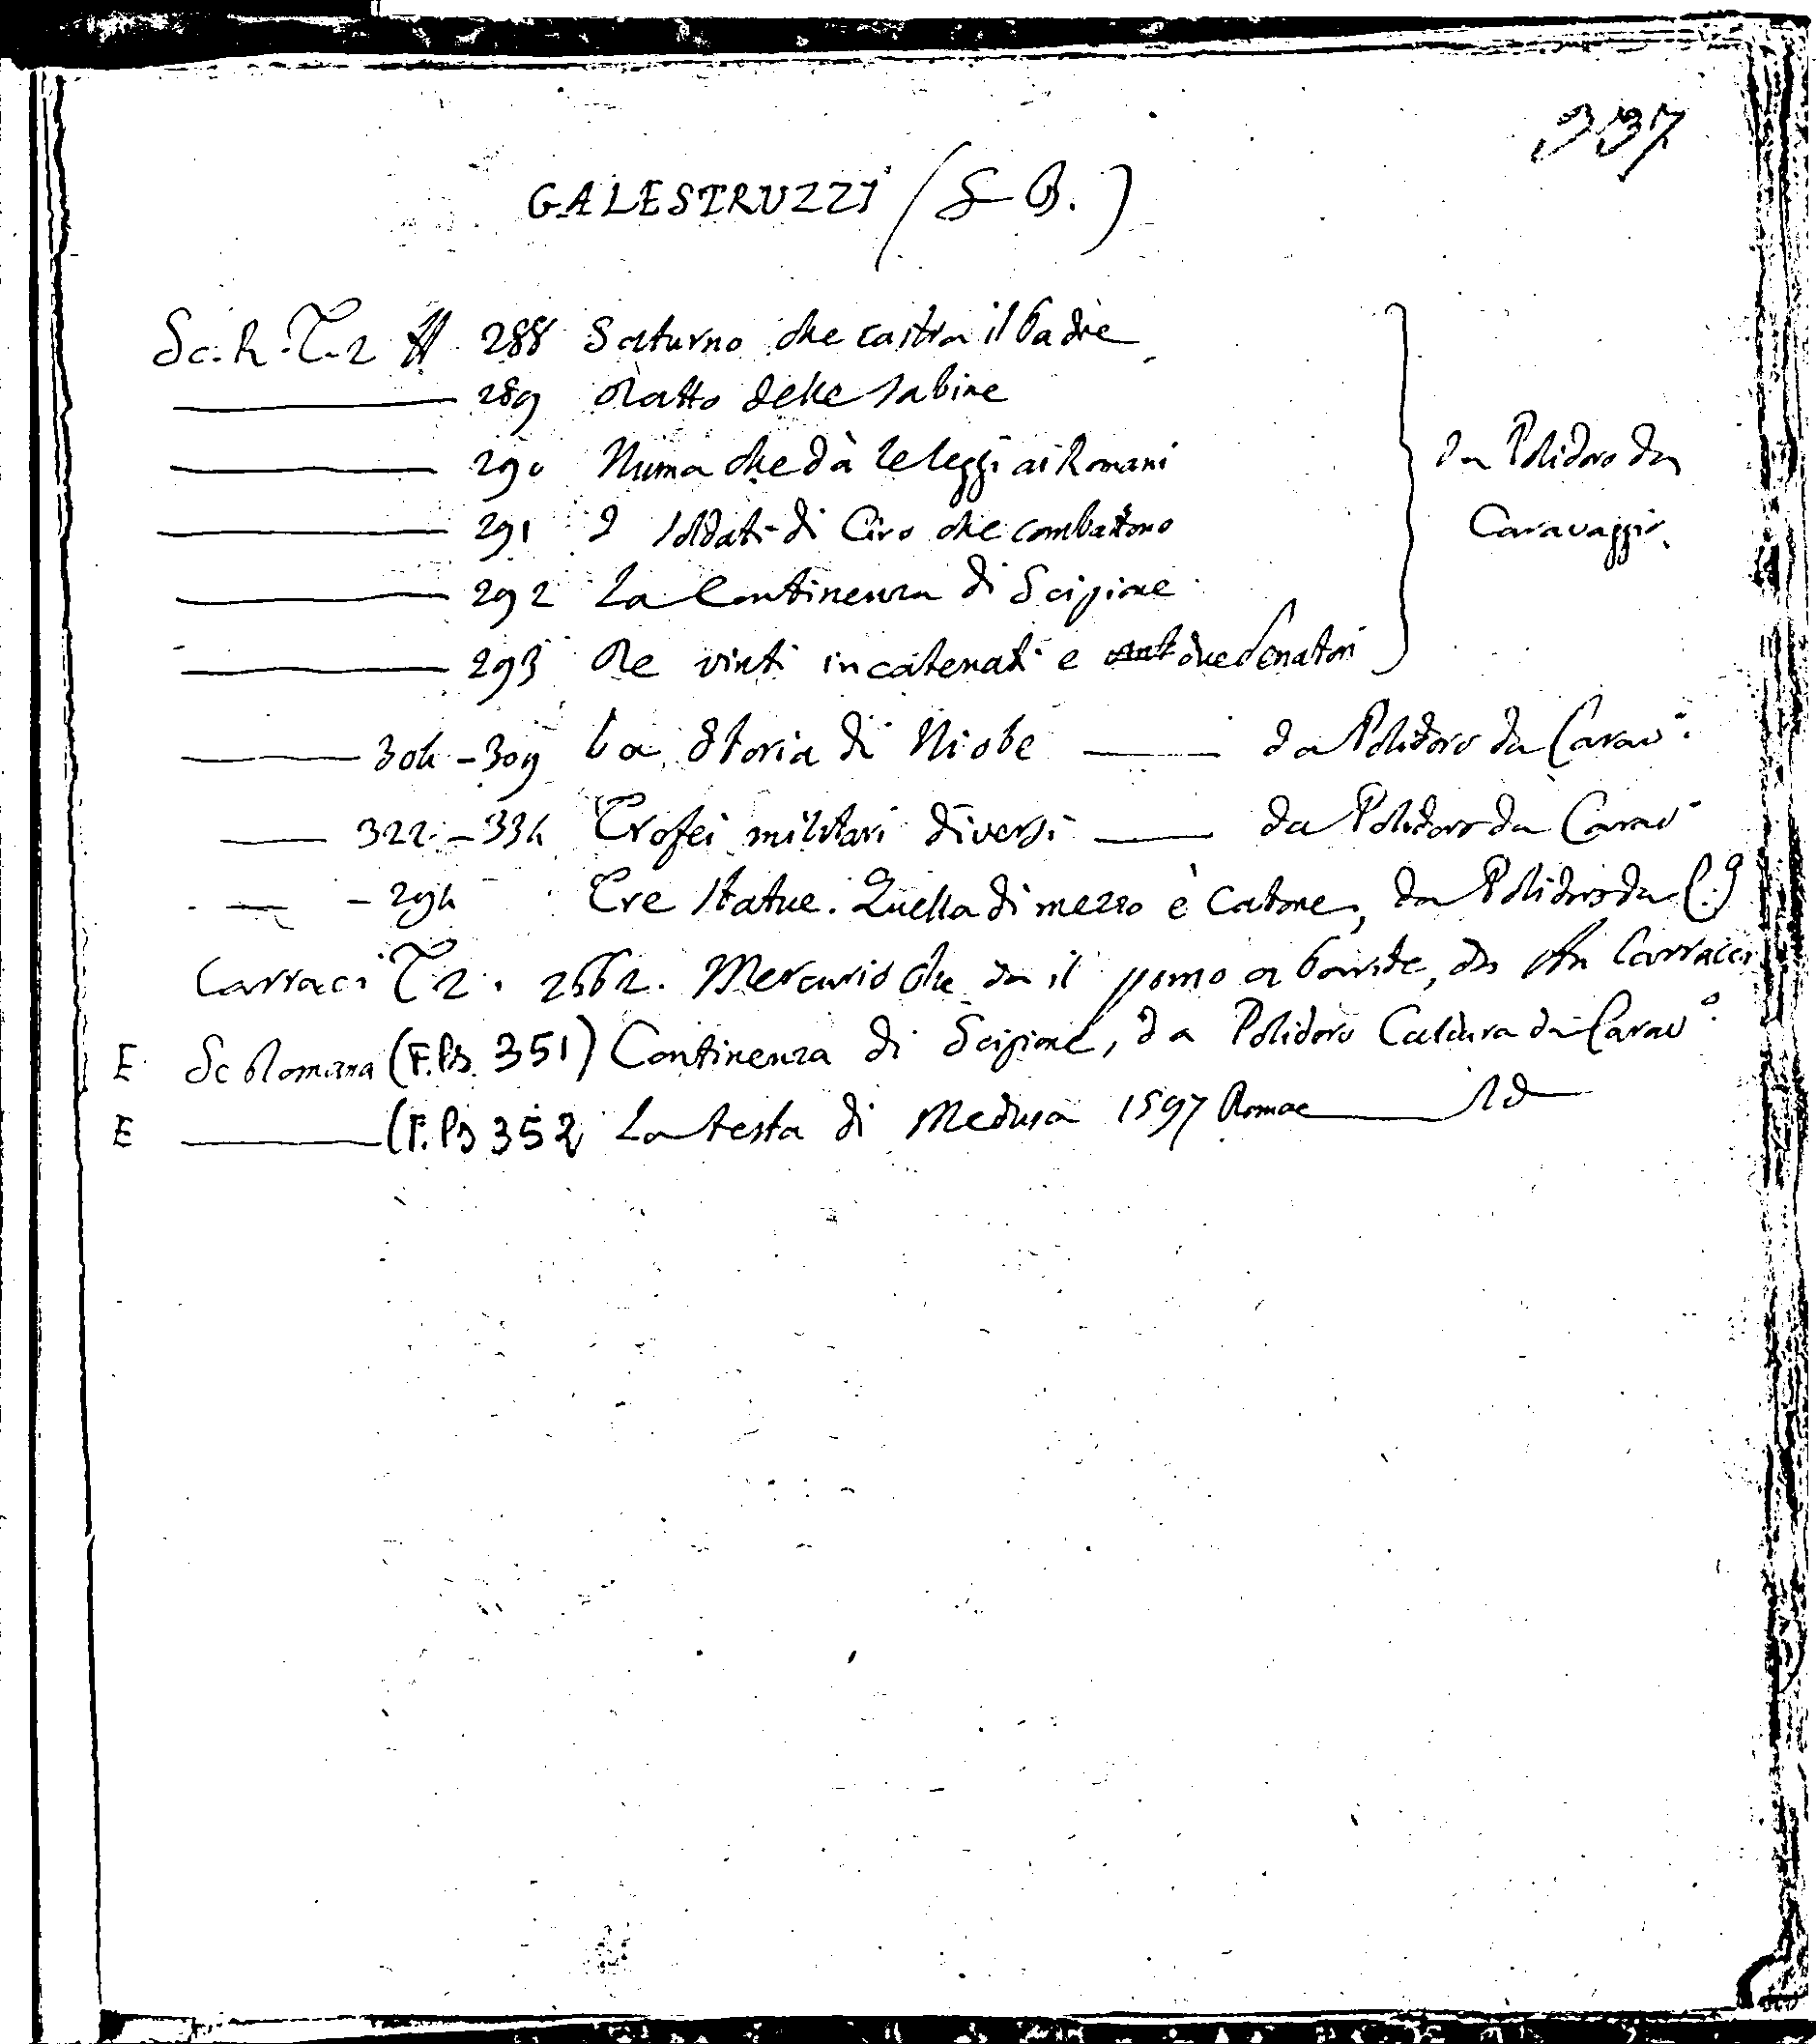 337
GALESTRUZZI (G B.)
Sc. R. T. 2 288 Saturno che castra il Padre
289 Ratto delle Sabine
290 Numa che dà le leggi ai Romani
291 I soldati di Ciro che combattono
292 La Continenza di Scipione
293 Re vinti incatenati e due Senatori
da Polidoro da
Caravaggio
304 - 309 La Storia di Niobe da Polidoro da Carav°.
322 - 334 Trofei militari diversi da Polidoro da Carav°
- 294 Tre statue. Quella di mezzo è Catone, da Polidoro da C.
Carraci T 2. 2562. Mercurio che da il pomo a Paride, da An Carracci
E Sc Romana (F.PB. 351) Continenza di Scipione, da Polidoro Caldara da Carav°.
E (F.PB 352 La testa di Medusa 1597 Romae Id